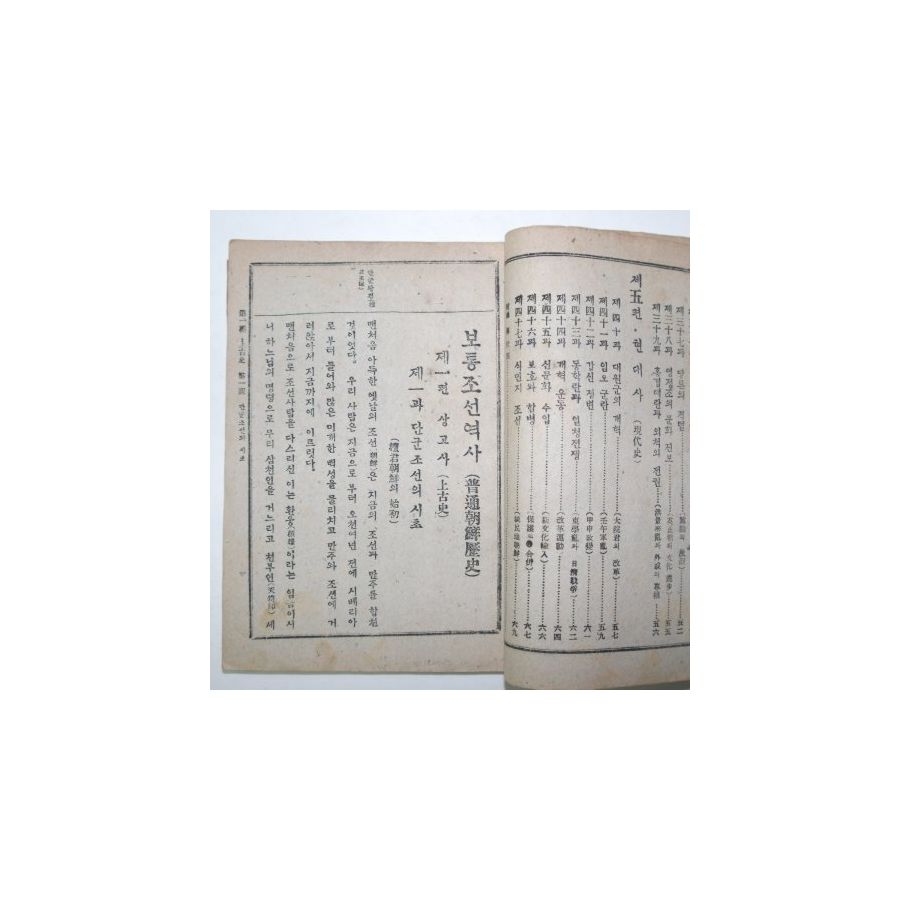 제三十七과 당론의 격변
제三十八과 영정조의 문화 진보 五五
제三十九과 홍경래란과 외척의 전권 五六
제五편・현대사 (現代史)
제四十과 대원군의 개혁 (大院君의 改革) 五七
제四十一과 임오군란 (壬午軍亂) 五九
제四十二과 갑신정변 (甲申政變) 六一
제四十三과 동학란과 일청전쟁 (東學亂과 日淸戰爭) 六二
제四十四과 개혁 운동 (改革運動) 六四
제四十五과 신문화 수입 (新文化輸入) 六六
제四十六과 보호와 합병 (保護와 合倂) 六七
제四十七과 식민지 조선 (植民地朝鮮) 六九
보통조선역사 (普通朝鮮歷史)
제一편 상고사 (上古史)
제一과 단군조선의 시초
(檀君朝鮮의 始初)
맨처음 아득한 옛날의 조선(朝鮮)은 지금의 조선과 만주를 합친
것이엇다. 우리 사람은 지금으로 부터 오천여년 전에 시베리아
로 부터 들어와 많은 미개한 백성을 물리치고 만주와 조선에 거
러앉아서 지금까지에 이르릿다.
맨처음으로 조선사람을 다스리신 이는 환웅(桓雄)이라는 임금이시
니 하느님의 명령으로 무리 삼천인을 거느리고 천부인(天符印) 세
第一編 上古史 第一課 단군조선의 시초